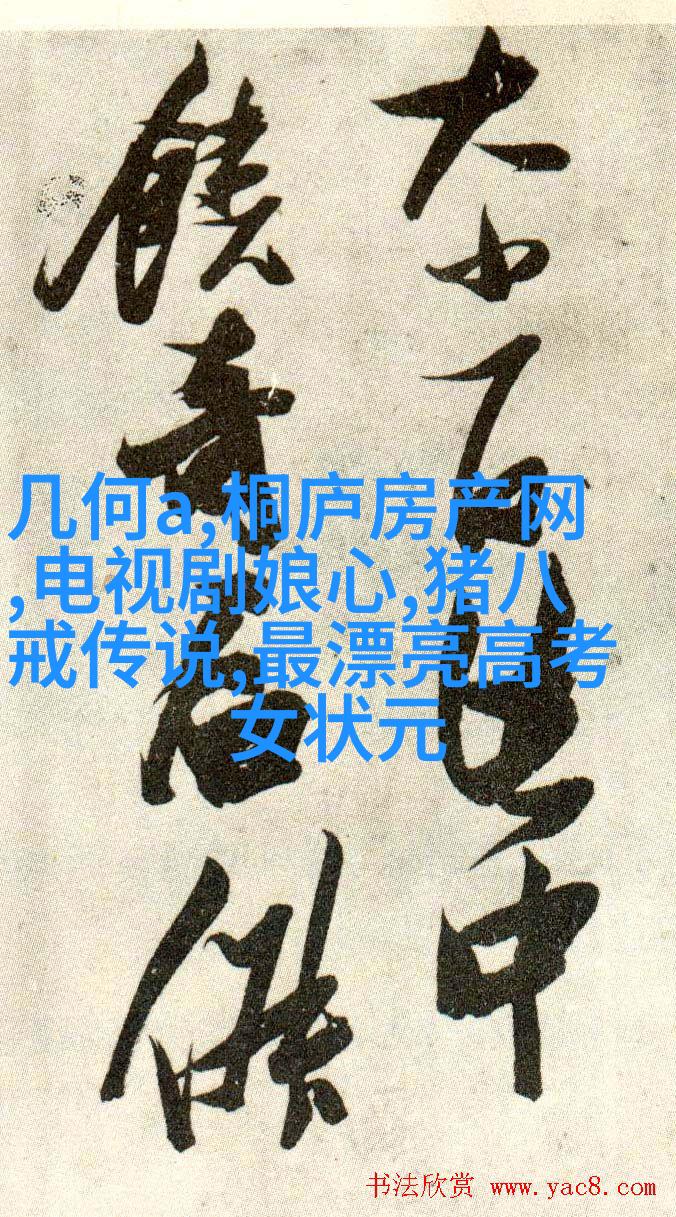 大小石其中
饒奇石傑
几何a,桐庐房产网
,电视剧娘心,猪八
戒传说,最漂亮高考
女状元
书法欣赏 www.yac8.com